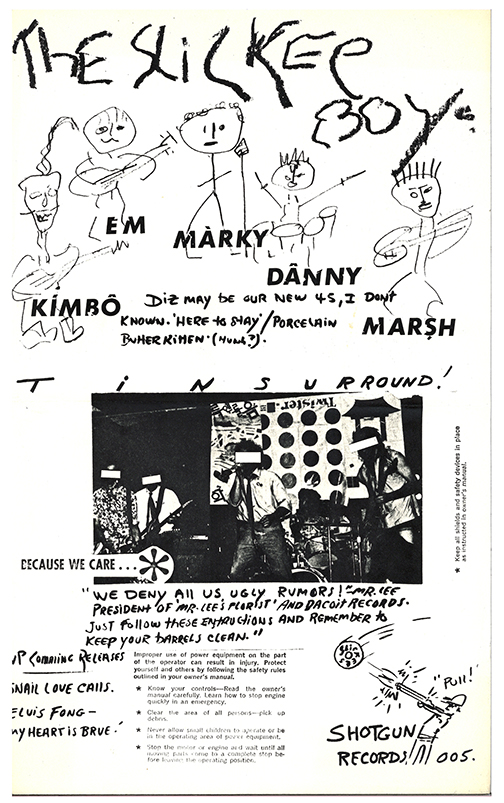 THE SLICKEE
BOYs
EM
MÀRKY
DÂNNY
KÍMBÔ
MARSH
DIZ MAY BE OUR NEW 45, I DONT
KNOWN. 'HERE to STAY'/PORCELAIN
BUHER KIHEN' (HUNG?).
T i N S U RROUND!
Twister
BECAUSE WE CARE...
★ Keep all shields and safety devices in place
as instructed in owner's manual.
"WE DENY All US UGLY RUMORS!"~MR. LEE
PRESIDENT OF 'MR. LEE'S FLORIST' AND DACOIT RECORDS.
JUST FOLLOW tHESE ENTRUCTIONS AND REMEMBER to
KEEP YOUR BARRELS CLEAN."
UP COMMING RELEASES
SNAIL LOVE CALLS.
ELVIS FONG—
MY HEART IS BRUE.'
Improper use of power equipment on the part
of the operator can result in injury. Protect
yourself and others by following the safety rules
outlined in your owner's manual.
★ Know your controls—Read the owner's
manual carefully. Learn how to stop engine
quickly in an emergency.
★ Clear the area of all persons—pick up
debris.
★ Never allow small children to operate or be
in the operating area of power equipment.
★ Stop the motor or engine and wait until all
moving parts come to a complete stop be-
fore leaving the operating position.
"PULL!"
SHOTGUN
RECORDS! 005.